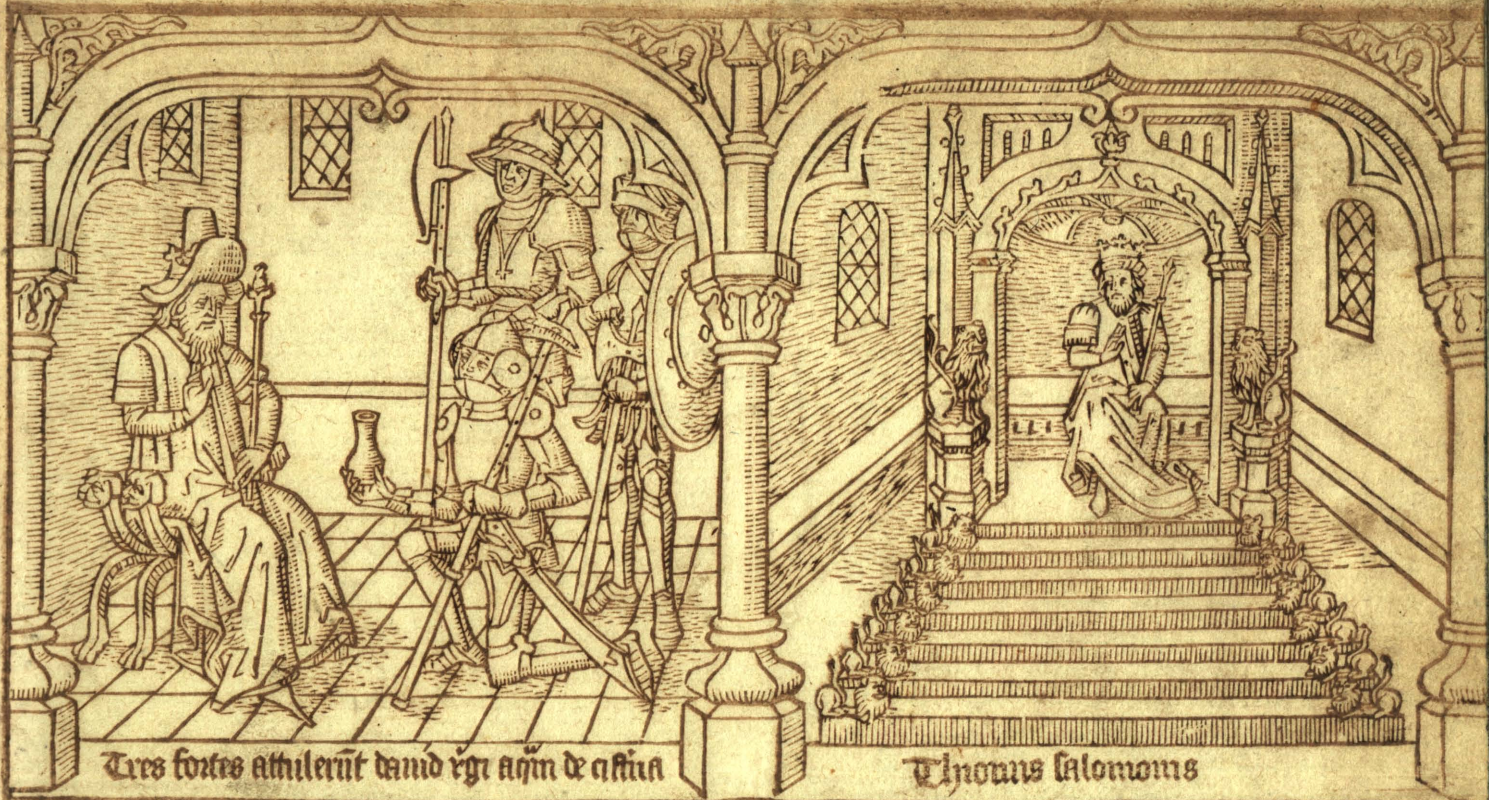 Tres fortes attulerūt dauid rͥgi aqͣm de cisterna
Thronus salomonis